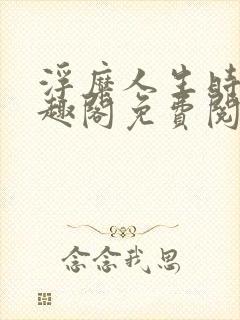 浮靡人生時
趣閣免費閱
念念我思